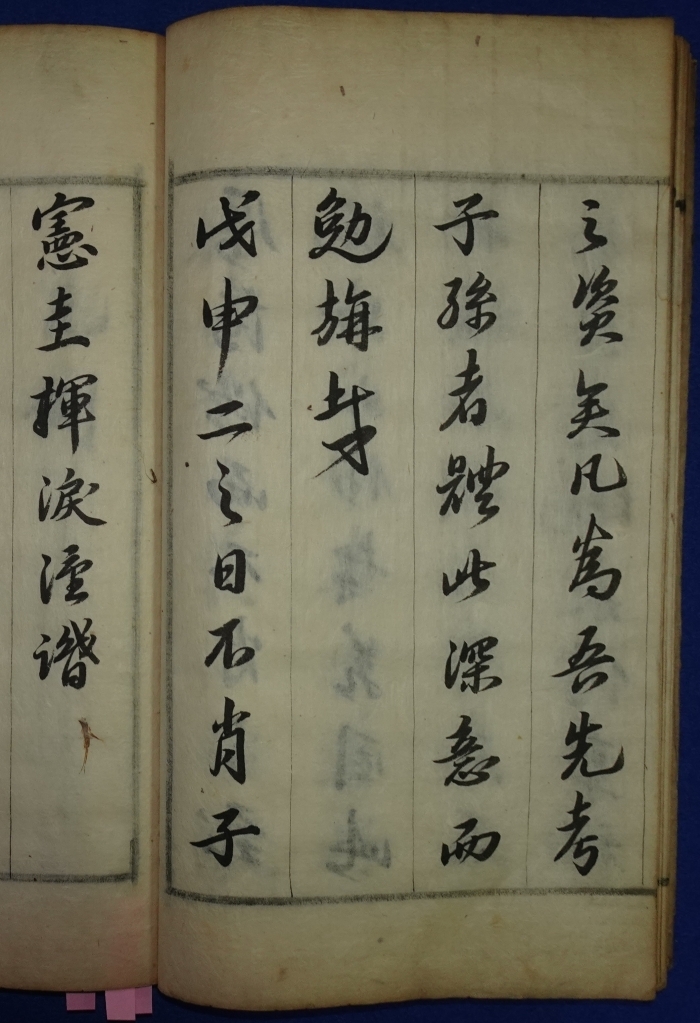 之資矣凡爲吾先考
子孫者體此深意而
勉旃哉
戊申二之日不肖子
憲圭揮淚譖